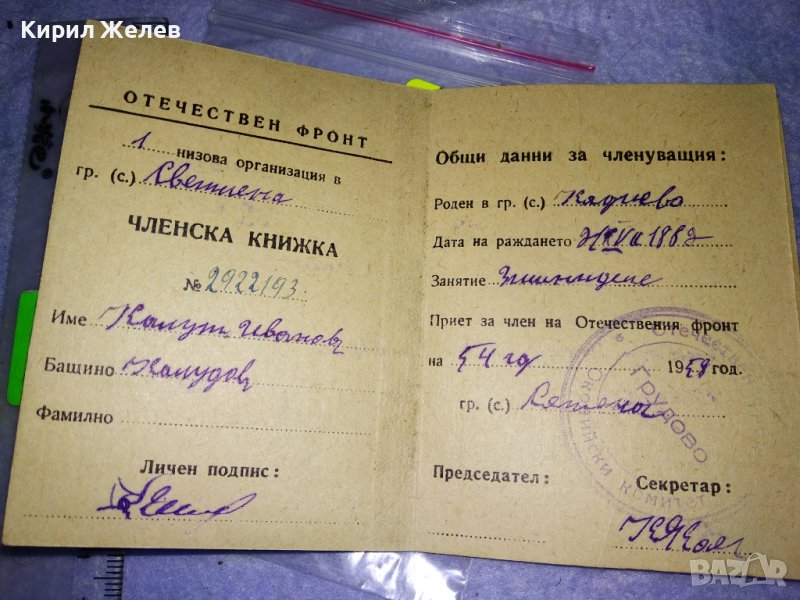 Кирил Желев
ОТЕЧЕСТВЕН ФРОНТ
1 низова организация в
гр. (с.) Светлена
ЧЛЕНСКА КНИЖКА
№ 2922193
Име Калут Иванов
Бащино Калудов
Фамилно
Личен подпис:
Общи данни за членуващия:
Роден в гр. (с.)
Дата на раждането 1882
Занятие
Приет за член на Отечествения фронт
на 54 год 1959 год.
гр. (с.)
Председател: Секретар:
Отечествен
ГРУДОВО
Околийски комитет
BAZAR